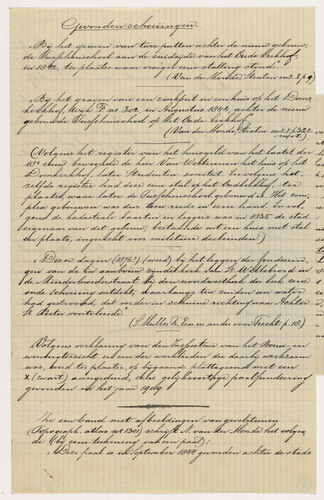 Gevonden schoeiingen.
"Bij het graven van twee putten achter de nieuw gebouw-
de Burgerschool aan de zuidzijde van het Oude Kerkhof,
in 1842, ter plaatse waar vroeger een stalling stond."
(Van der Monde, Straten enz. I, p. 9.)
"Bij het graven van een zinkput in een huis op het Dom-
kerkhof, Wijk F no 302, in Augustus 1844, achter de nieuw
gebouwde Burgerschool op het Oude Kerkhof."
(Van der Monde, Straten enz. I p. 322
(Volgens het register van het huisgeld van het laatst der
18e eeuw bewoonde de heer Van het huis op het
Domkerkhof, later Studenten societeit. En volgens het-
zelfde register had deze een stal op het Oudkerkhof, ter
plaatse waar later de Burgerschool gebouwd is. Het com-
plex gebouwen was dus door reeds in een hand. En vol-
gens de kadastrale kaarten en leggers was in 1835 de stad
eigenaar van dit gebouw, bestaande uit een huis met stal
ter plaatse, ingericht voor militaire doeleinden.)
"Dezer dagen (1876?) (werd) bij het leggen der fondeerin-
gen van de in aanbouw zijnde kerk van St. Willebrord in
de Minderbroederstraat bij den noordwesthoek der kerk eene
oude schoeiing ontdekt, die van langs ter zuiden een water
had gestrooid, dat verder in schuine richting naar Achter
St. Pieter voortvloeide."
(S. Muller Fz. Een en ander over Trecht p. 10.)
Volgens verklaring van den Inspecteur van het Bouw- en
woningtoezicht en een der werklieden die daarbij werkzaam
was, werd ter plaatse, op bijgaande plattegrond met een
X (zwart) aangeduid, echte gelijksoortige paalfundeering
gevonden in het jaar 1909.
In een band met afbeeldingen van gevelsteenen
(Topograph. atlas no 1301) schrijft N. van der Monde het volgen
de (bij eene teekening van een paal):
"Deze paal is in September 1844 gevonden achter de stads